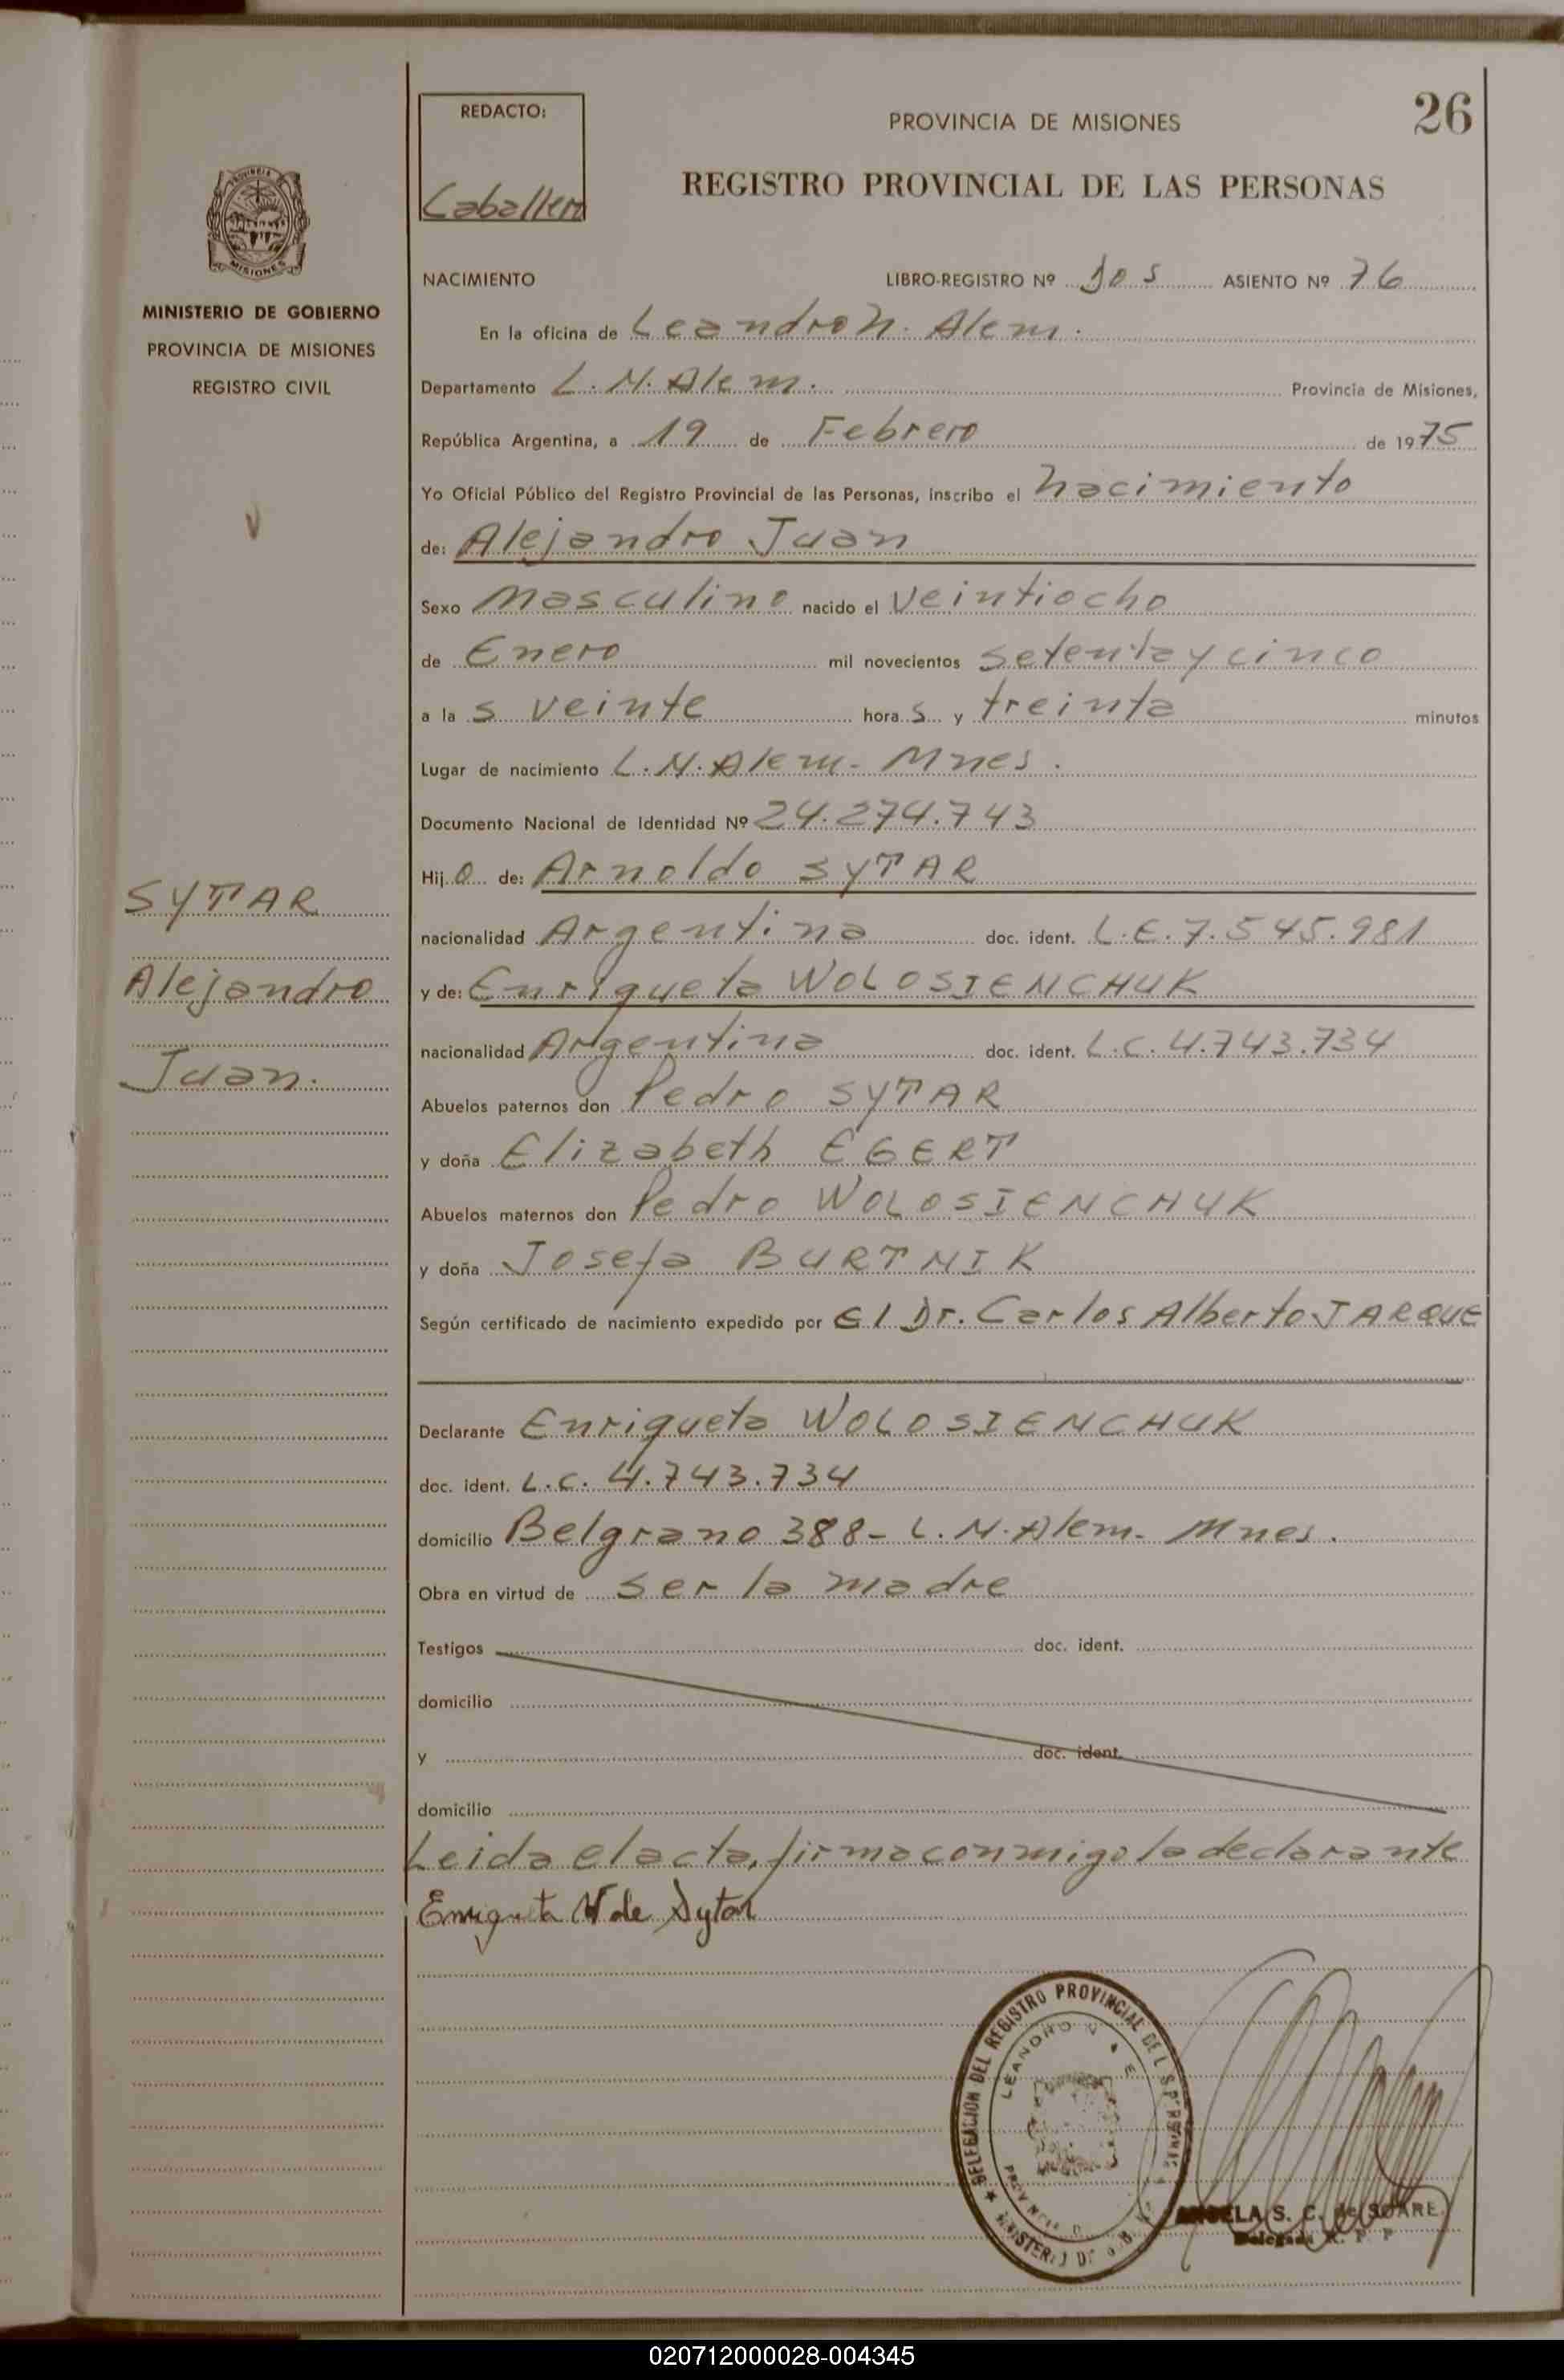 26
REDACTO:
Caballero
PROVINCIA DE MISIONES
REGISTRO PROVINCIAL DE LAS PERSONAS
MISIONES
MINISTERIO DE GOBIERNO
PROVINCIA DE MISIONES
REGISTRO CIVIL
NACIMIENTO LIBRO-REGISTRO Nº dos ASIENTO Nº 76
En la oficina de Leandro N. Alem.
Departamento L. N. Alem. Provincia de Misiones,
República Argentina, a 19 de Febrero de 1975
Yo Oficial Público del Registro Provincial de las Personas, inscribo el nacimiento
de: Alejandro Juan
Sexo Masculino nacido el veintiocho
de Enero mil novecientos setenta y cinco
a la s veinte hora s y treinta minutos
Lugar de nacimiento L. N. Alem - Mnes.
Documento Nacional de Identidad Nº 24.274.743
Hij o de: Arnoldo SYTAR
nacionalidad Argentina doc. ident. L.E. 7.545.981
y de: Enriqueta WOLOSIENCHUK
nacionalidad Argentina doc. ident. L.C. 4.743.734
Abuelos paternos don Pedro SYTAR
y doña Elizabeth EGERT
Abuelos maternos don Pedro WOLOSIENCHUK
y doña Josefa BURTNIK
Según certificado de nacimiento expedido por El Dr. Carlos Alberto JARQUE
SYTAR
Alejandro
Juan.
Declarante Enriqueta WOLOSIENCHUK
doc. ident. L.C. 4.743.734
domicilio Belgrano 388 - L. N. Alem - Mnes.
Obra en virtud de ser la madre
Testigos doc. ident.
domicilio
y doc. ident.
domicilio
Leida el acta, firma conmigo la declarante
Enriqueta W de Sytar
DELEGACION DEL REGISTRO PROVINCIAL DE
LEANDRO N
S. C. de
Delegada
020712000028-004345